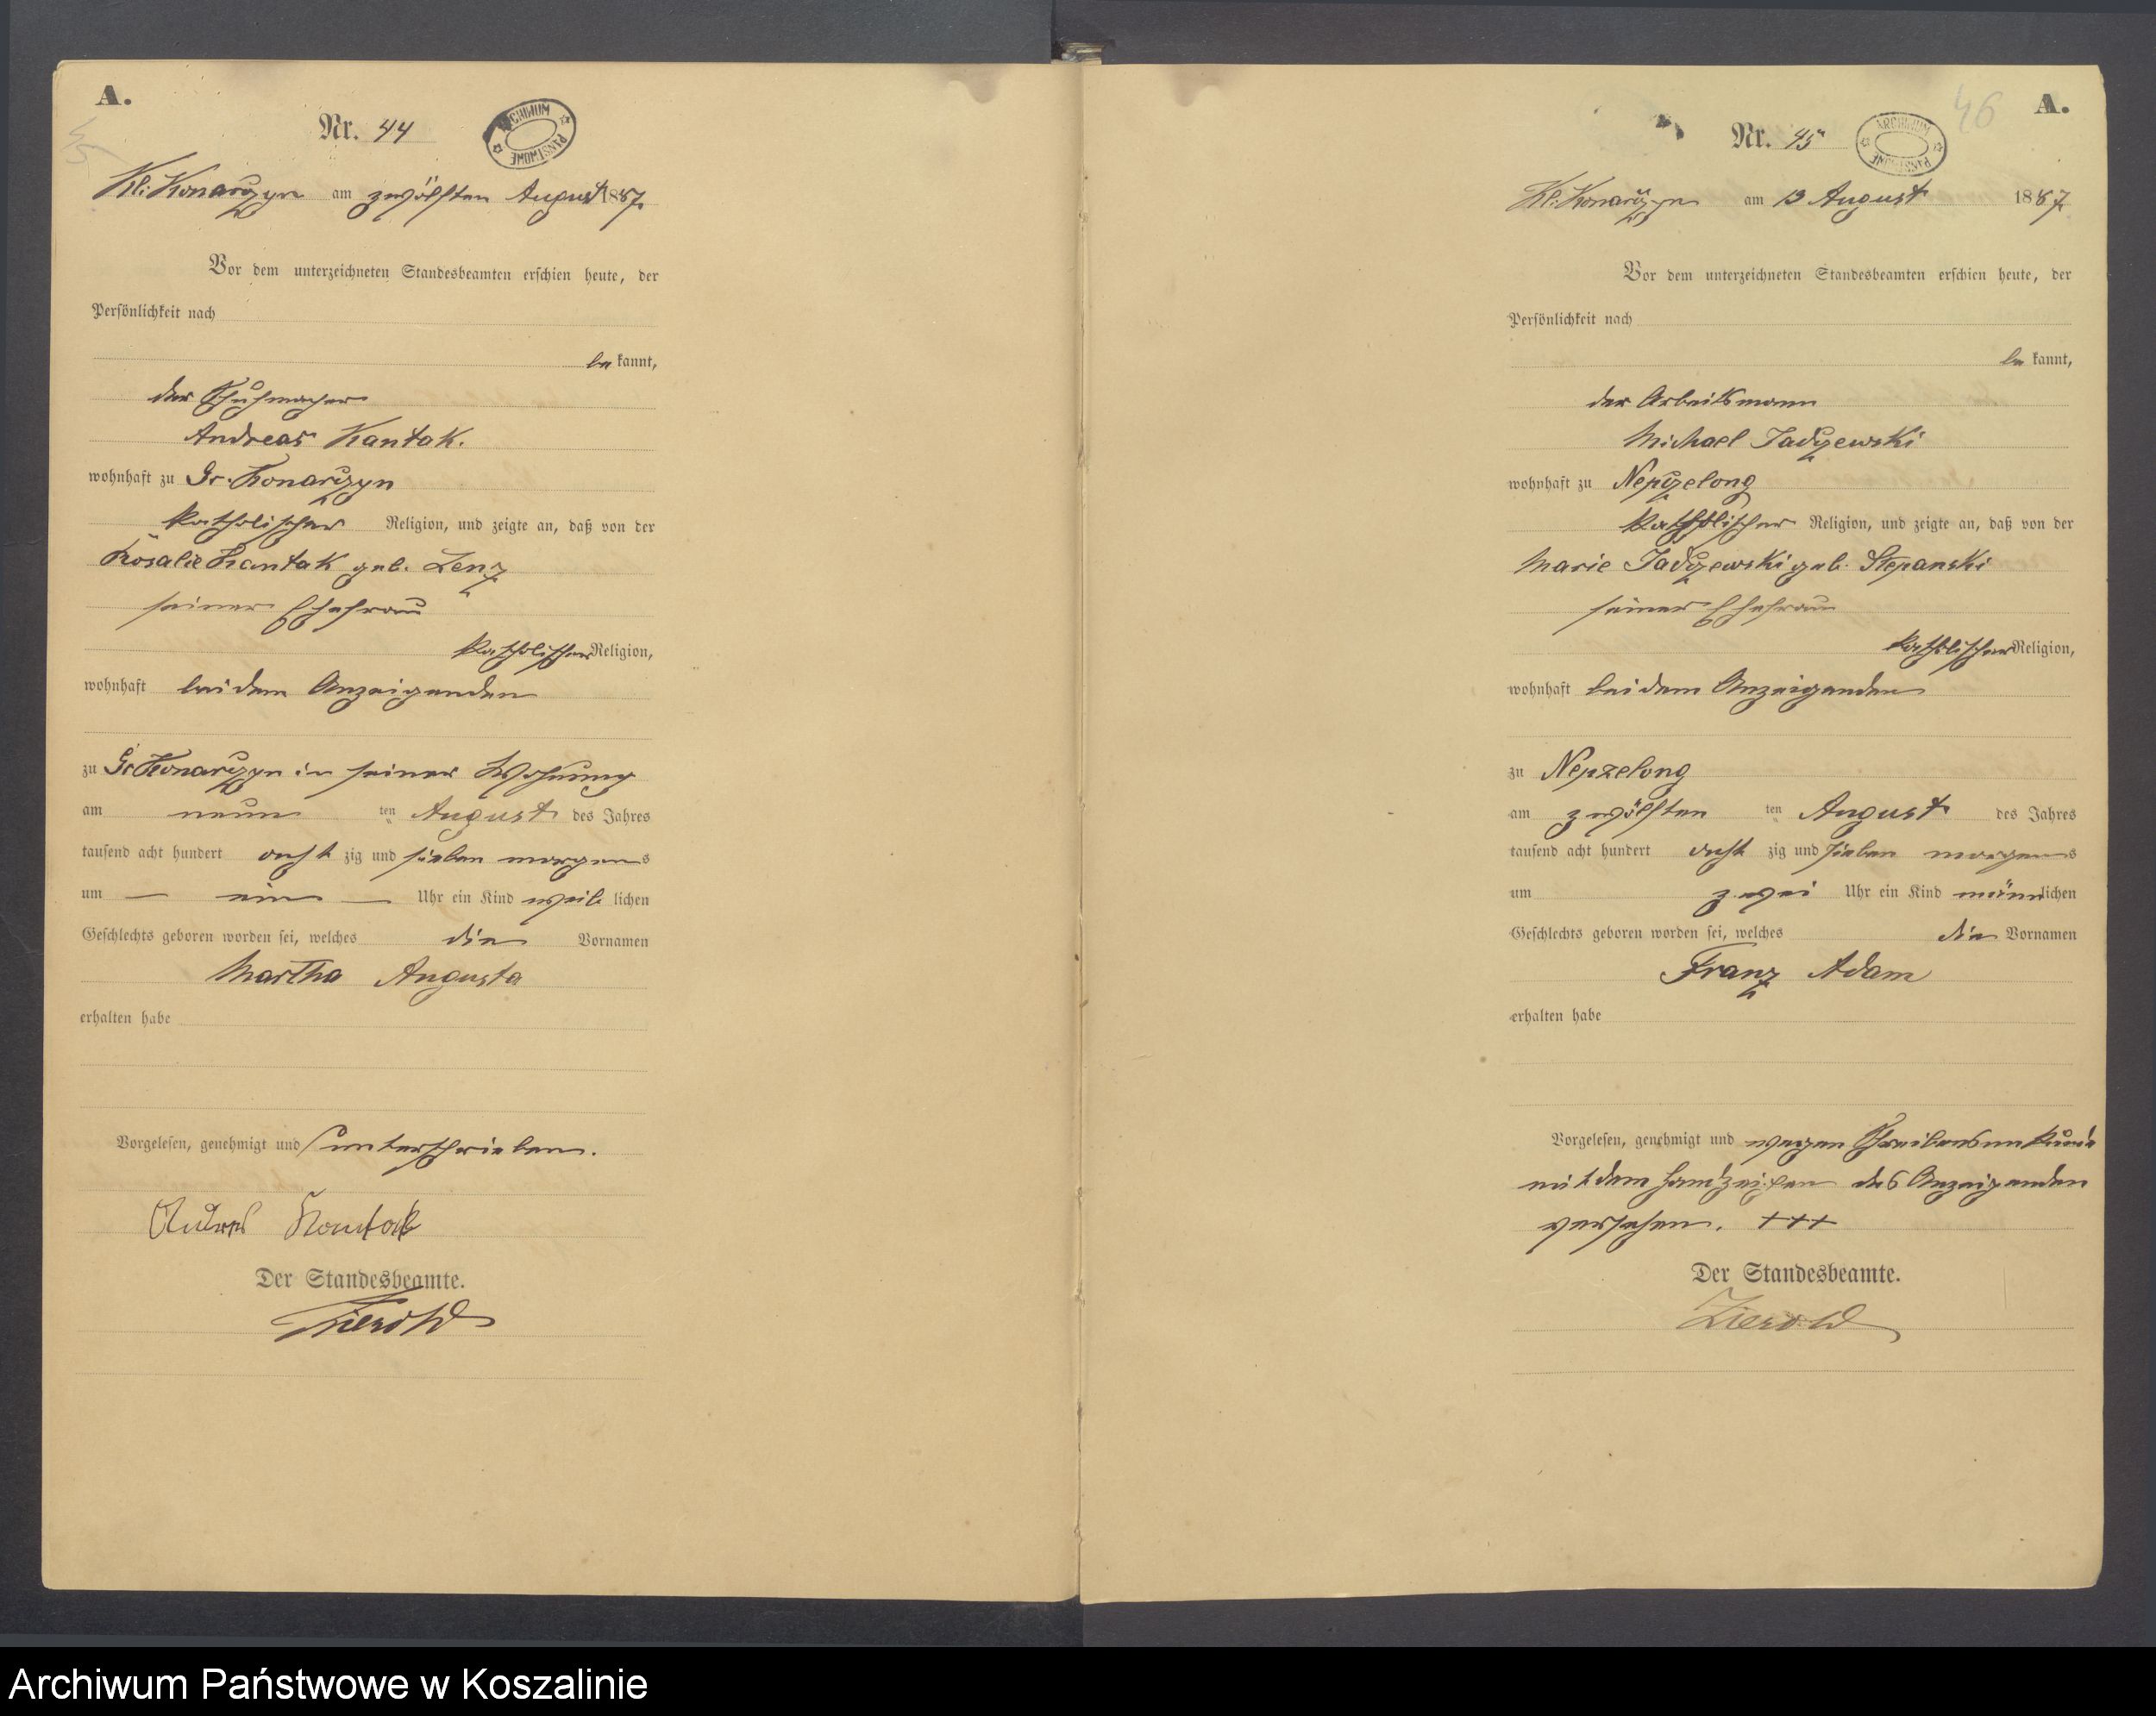 A.
Nr. 44
ARCHIWUM PAŃSTWOWE
Kl: Konarczyn am zwölften August 1887.
Vor dem unterzeichneten Standesbeamten erschien heute, der
Persönlichkeit nach
be kannt,
der Schuhmacher
Andreas Kantak.
wohnhaft zu Gr. Konarczyn
katholischer Religion, und zeigte an, daß von der
Rosalie Kantak geb. Lenz
seiner Ehefrau
katholischer Religion,
wohnhaft bei dem Anzeigenden
zu Gr Konarczyn in seiner Wohnung
am neun ten August des Jahres
tausend acht hundert acht zig und sieben morgens
um — ein — Uhr ein Kind weib lichen
Geschlechts geboren worden sei, welches die Vornamen
Martha Augusta
erhalten habe
Vorgelesen, genehmigt und unterschrieben.
Andreas Kantak
Der Standesbeamte.
Zierold
46
A.
Nr. 45
ARCHIWUM PAŃSTWOWE
Kl: Konarczyn am 13 August 1887
Vor dem unterzeichneten Standesbeamten erschien heute, der
Persönlichkeit nach
be kannt,
der Arbeitsmann
Michael Jadczewski
wohnhaft zu Nepczelong
katholischer Religion, und zeigte an, daß von der
Marie Jadczewski geb. Stepanski
seiner Ehefrau
katholischer Religion,
wohnhaft bei dem Anzeigenden
zu Nepzelong
am zwölften ten August des Jahres
tausend acht hundert acht zig und sieben morgens
um zwei Uhr ein Kind männlichen
Geschlechts geboren worden sei, welches die Vornamen
Franz Adam
erhalten habe
Vorgelesen, genehmigt und wegen Schreibensunkunde
mit dem Handzeichen des Anzeigenden
versehen. +++
Der Standesbeamte.
Zierold
Archiwum Państwowe w Koszalinie